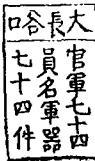 大長峪
官軍七十四
員名軍器
七十四件